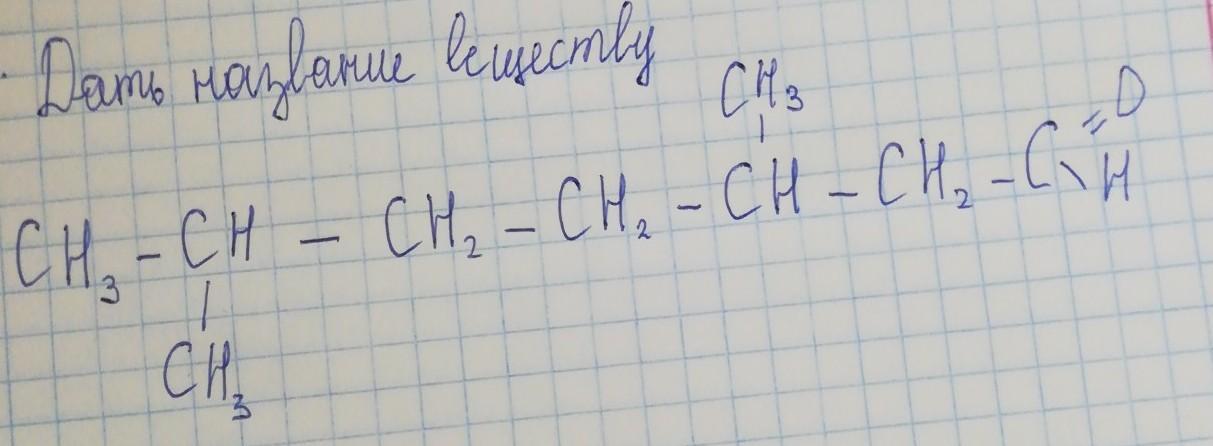 Дать название веществу
CH₃
CH₃ – CH – CH₂ – CH₂ – CH – CH₂ – C =O \ H
CH₃